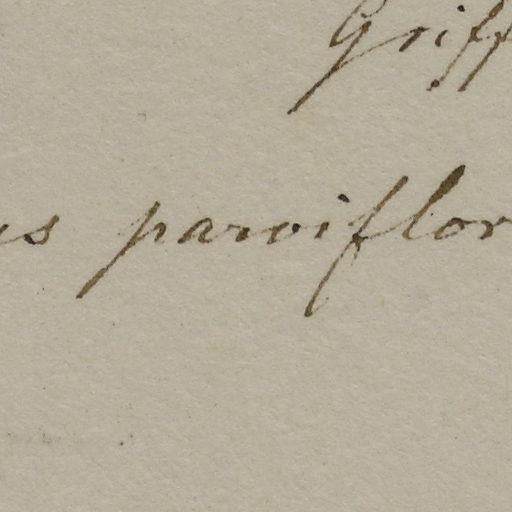 Griff
us parviflor